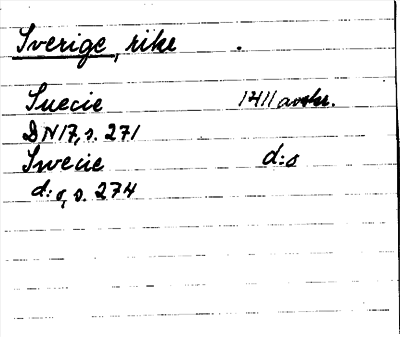 Sverige, rike
Suecie 1411 avskr.
DN17, s. 271
Swecie d:o
d:o, s. 274